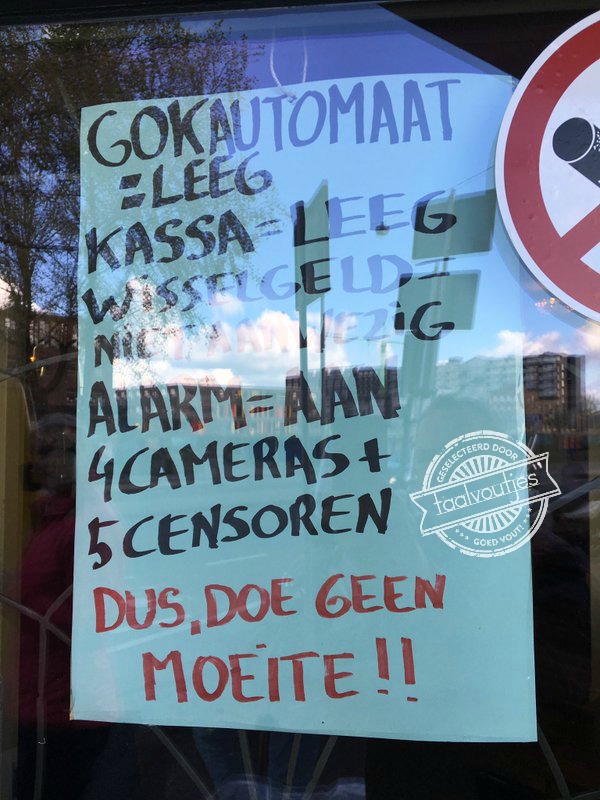 GOKAUTOMAAT
=LEEG
KASSA=LEEG
WISSELGELD=
NIET AANWEZIG
ALARM=AAN
4 CAMERAS+
5 CENSOREN
DUS, DOE GEEN
MOEITE!!
GESELECTEERD DOOR
"taalvoutjes"
GOED YOUT!